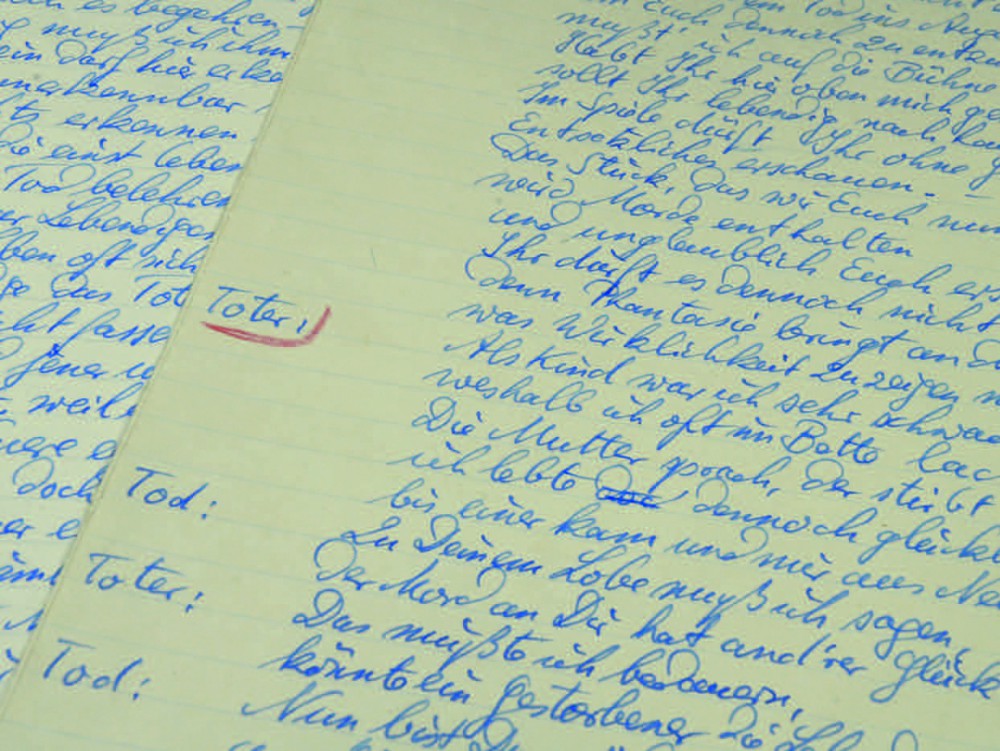 es begehren
muß ich ihm
ein darf hier
erkennbar
erkennen
die einst leben
Tod belehren
Lebendigen
oft sich
das Tot
fasse
jener
weil
doch
Tod ins
Euch dennoch zu
müßt ich auf die Bühne
Habt Ihr hier oben mich
sollt Ihr lebendig nach
Im Spiele dürft Ihr ohne
Entsetzliches erschauen.
Das Stück, das wir Euch nun
wird Morde enthalten
und unglaublich Euch
Ihr dürft es dennoch nicht
Toter:
denn Phantasie bringt an
was Wirklichkeit zu zeigen
Als Kind war ich sehr schwa
weshalb ich oft im Bette lac
Die Mutter sprach, der stirbt
ich lebte dennoch
bis einer kam und mir aus Ne
Tod:
Zu Deinem Lobe muß ich sagen,
der Mord an Dir hat and'rer Glück
Toter:
Das müßte ich bedauern,
könnte ein Gestorbener die
Tod:
Nun bist